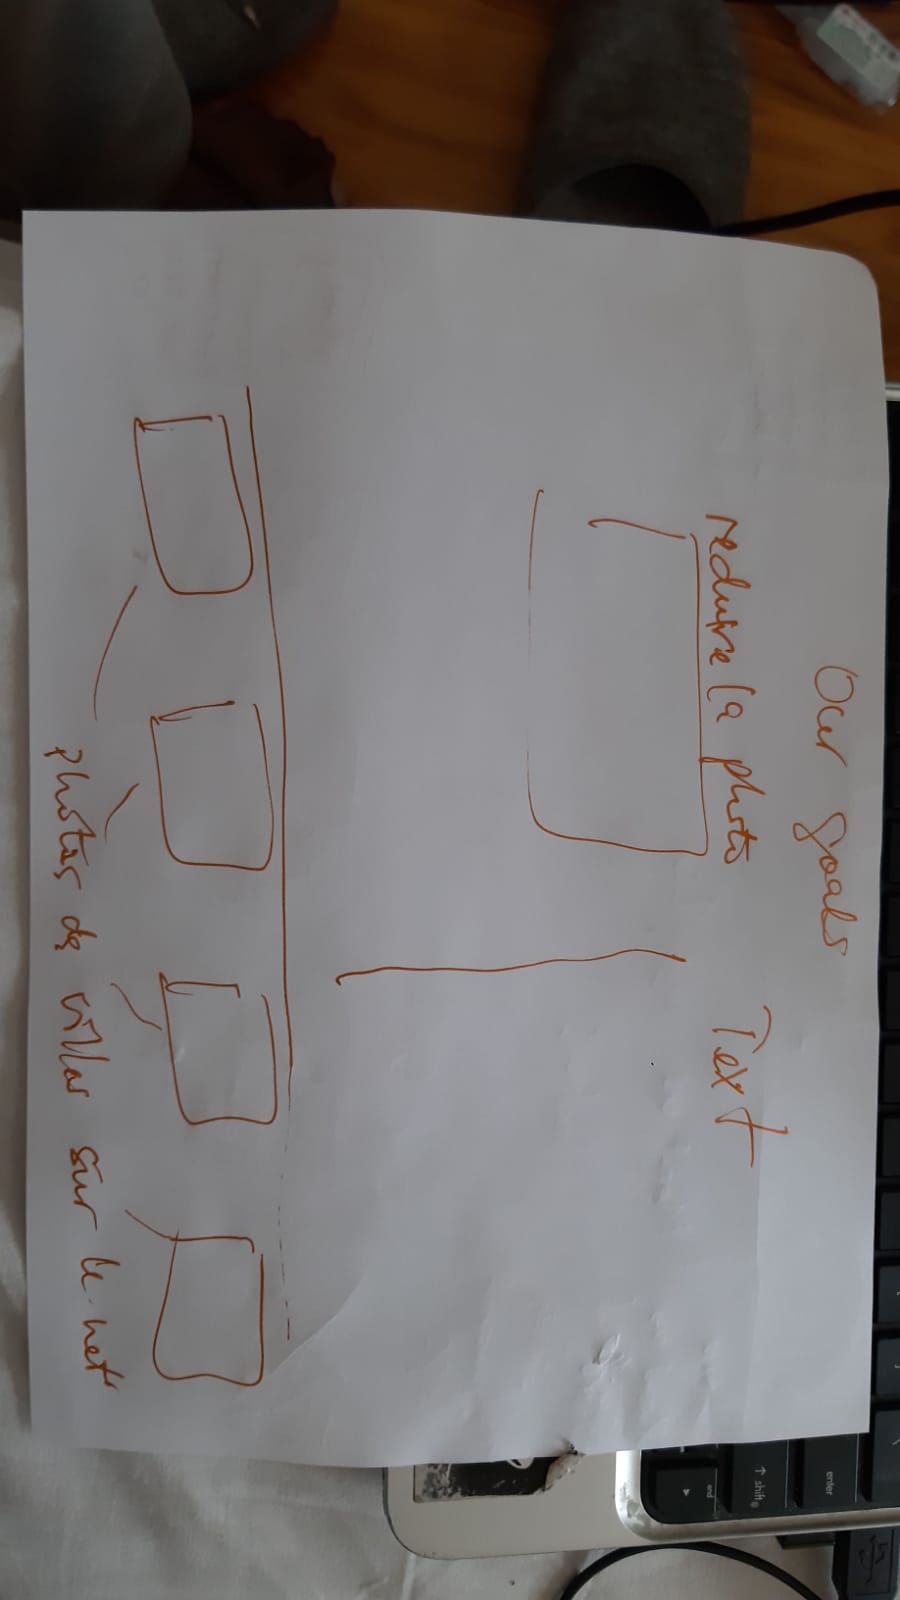 Our goals
reduire la photo
Text
photos de villas sur le net
enter
↑ shift
end